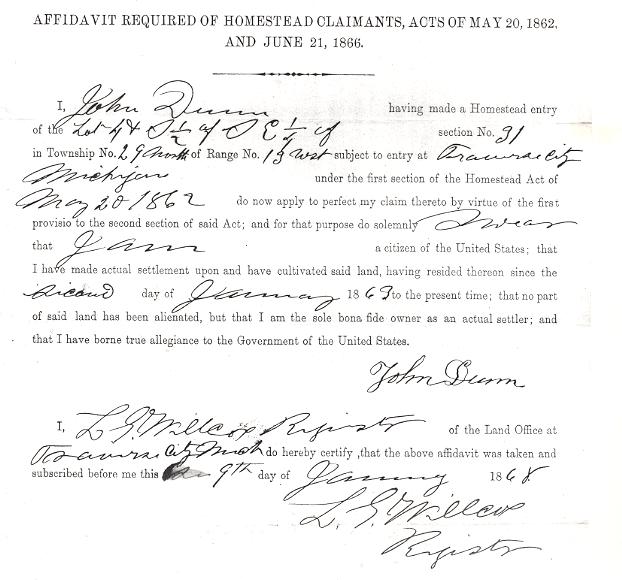 AFFIDAVIT REQUIRED OF HOMESTEAD CLAIMANTS, ACTS OF MAY 20, 1862,
AND JUNE 21, 1866.
I, John Dunn having made a Homestead entry
of the Lot 4 & S 1/2 of S E 1/4 of section No. 31
in Township No. 29 North of Range No. 13 West subject to entry at Traverse City
Michigan under the first section of the Homestead Act of
May 20 1862 do now apply to perfect my claim thereto by virtue of the first
provisio to the second section of said Act; and for that purpose do solemnly Swear
that I am a citizen of the United States; that
I have made actual settlement upon and have cultivated said land, having resided thereon since the
second day of January 1863 to the present time; that no part
of said land has been alienated, but that I am the sole bona fide owner as an actual settler; and
that I have borne true allegiance to the Government of the United States.
John Dunn
I, L. G. Willcox Register of the Land Office at
Traverse City Mich do hereby certify, that the above affidavit was taken and
subscribed before me this 9th day of January 1868
L. G. Willcox
Register